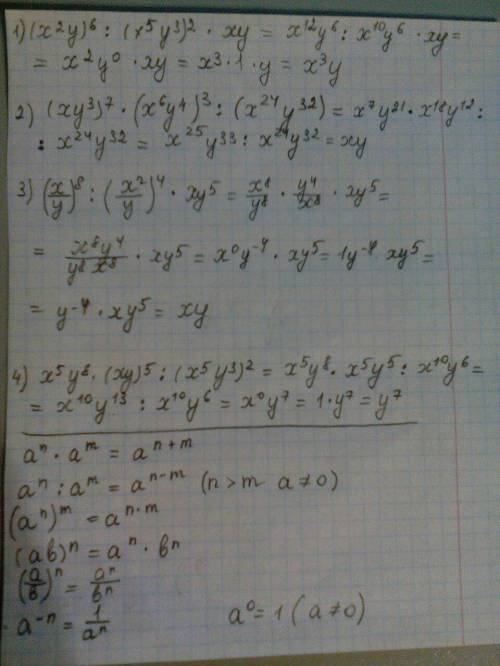 1) (x²y)⁶ : (x⁵y³)² · xy = x¹²y⁶ : x¹⁰y⁶ · xy =
= x²y⁰ · xy = x³ · 1 · y = x³y
2) (xy³)⁷ · (x⁶y⁴)³ : (x²⁴y³²) = x⁷y²¹ · x¹⁸y¹² :
: x²⁴y³² = x²⁵y³³ : x²⁴y³² = xy
3) (x/y)⁸ : (x²/y)⁴ · xy⁵ = x⁸/y⁸ · y⁴/x⁸ · xy⁵ =
= x⁸y⁴/y⁸x⁸ · xy⁵ = x⁰y⁻⁴ · xy⁵ = 1y⁻⁴ xy⁵ =
= y⁻⁴ · xy⁵ = xy
4) x⁵y⁸ · (xy)⁵ : (x⁵y³)² = x⁵y⁸ · x⁵y⁵ : x¹⁰y⁶ =
= x¹⁰y¹³ : x¹⁰y⁶ = x⁰y⁷ = 1 · y⁷ = y⁷
aⁿ · aᵐ = aⁿ⁺ᵐ
aⁿ : aᵐ = aⁿ⁻ᵐ (n > m a ≠ 0)
(aⁿ)ᵐ = aⁿ·ᵐ
(ab)ⁿ = aⁿ · bⁿ
(a/b)ⁿ = aⁿ/bⁿ
a⁻ⁿ = 1/aⁿ a⁰ = 1 (a ≠ 0)